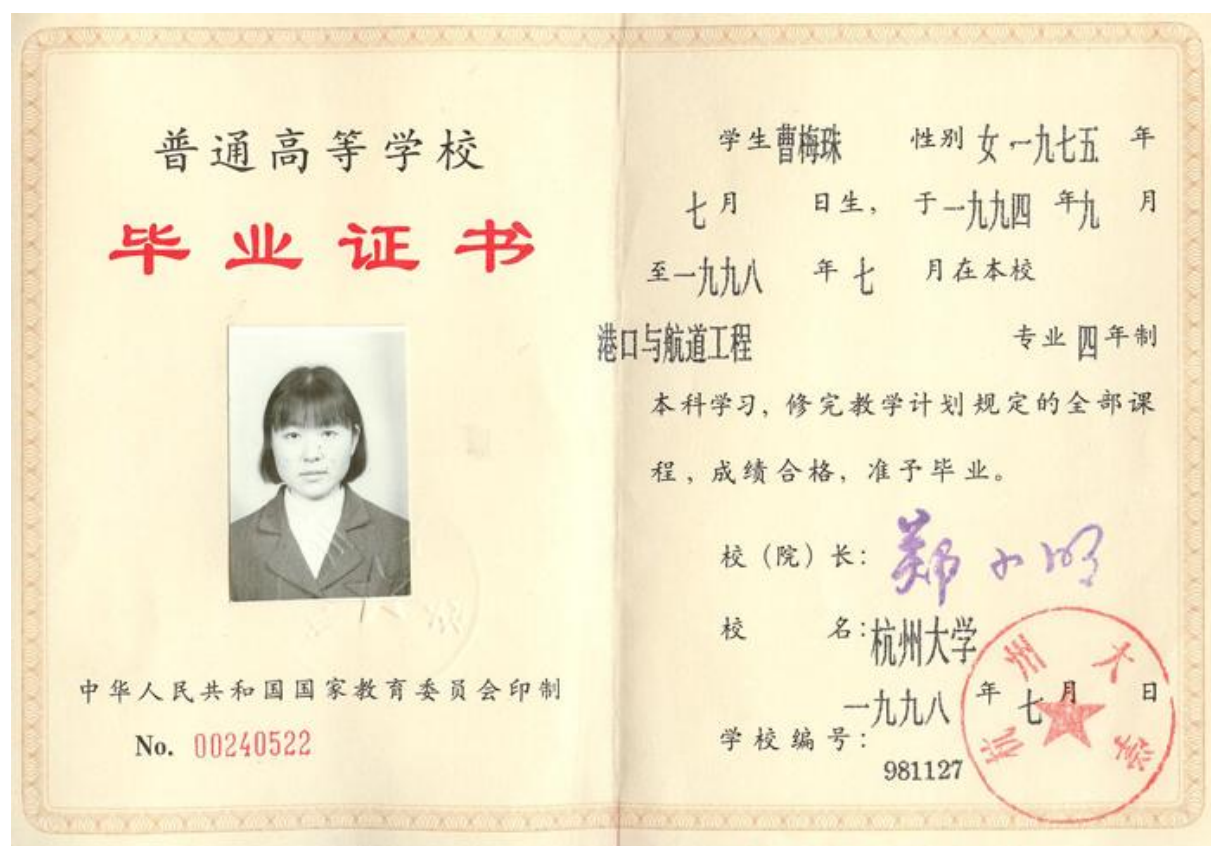 普通高等学校
毕业证书
中华人民共和国国家教育委员会印制
No. 00240522
学生曹梅珠 性别 女 一九七五 年
七月 日生, 于一九九四 年九 月
至一九九八 年 七 月在本校
港口与航道工程 专业 四 年制
本科学习, 修完教学计划规定的全部课
程, 成绩合格, 准予毕业。
校(院)长: 郑小明
校 名: 杭州大学
一九九八 年 七 月 日
学校编号:
981127
杭州大学